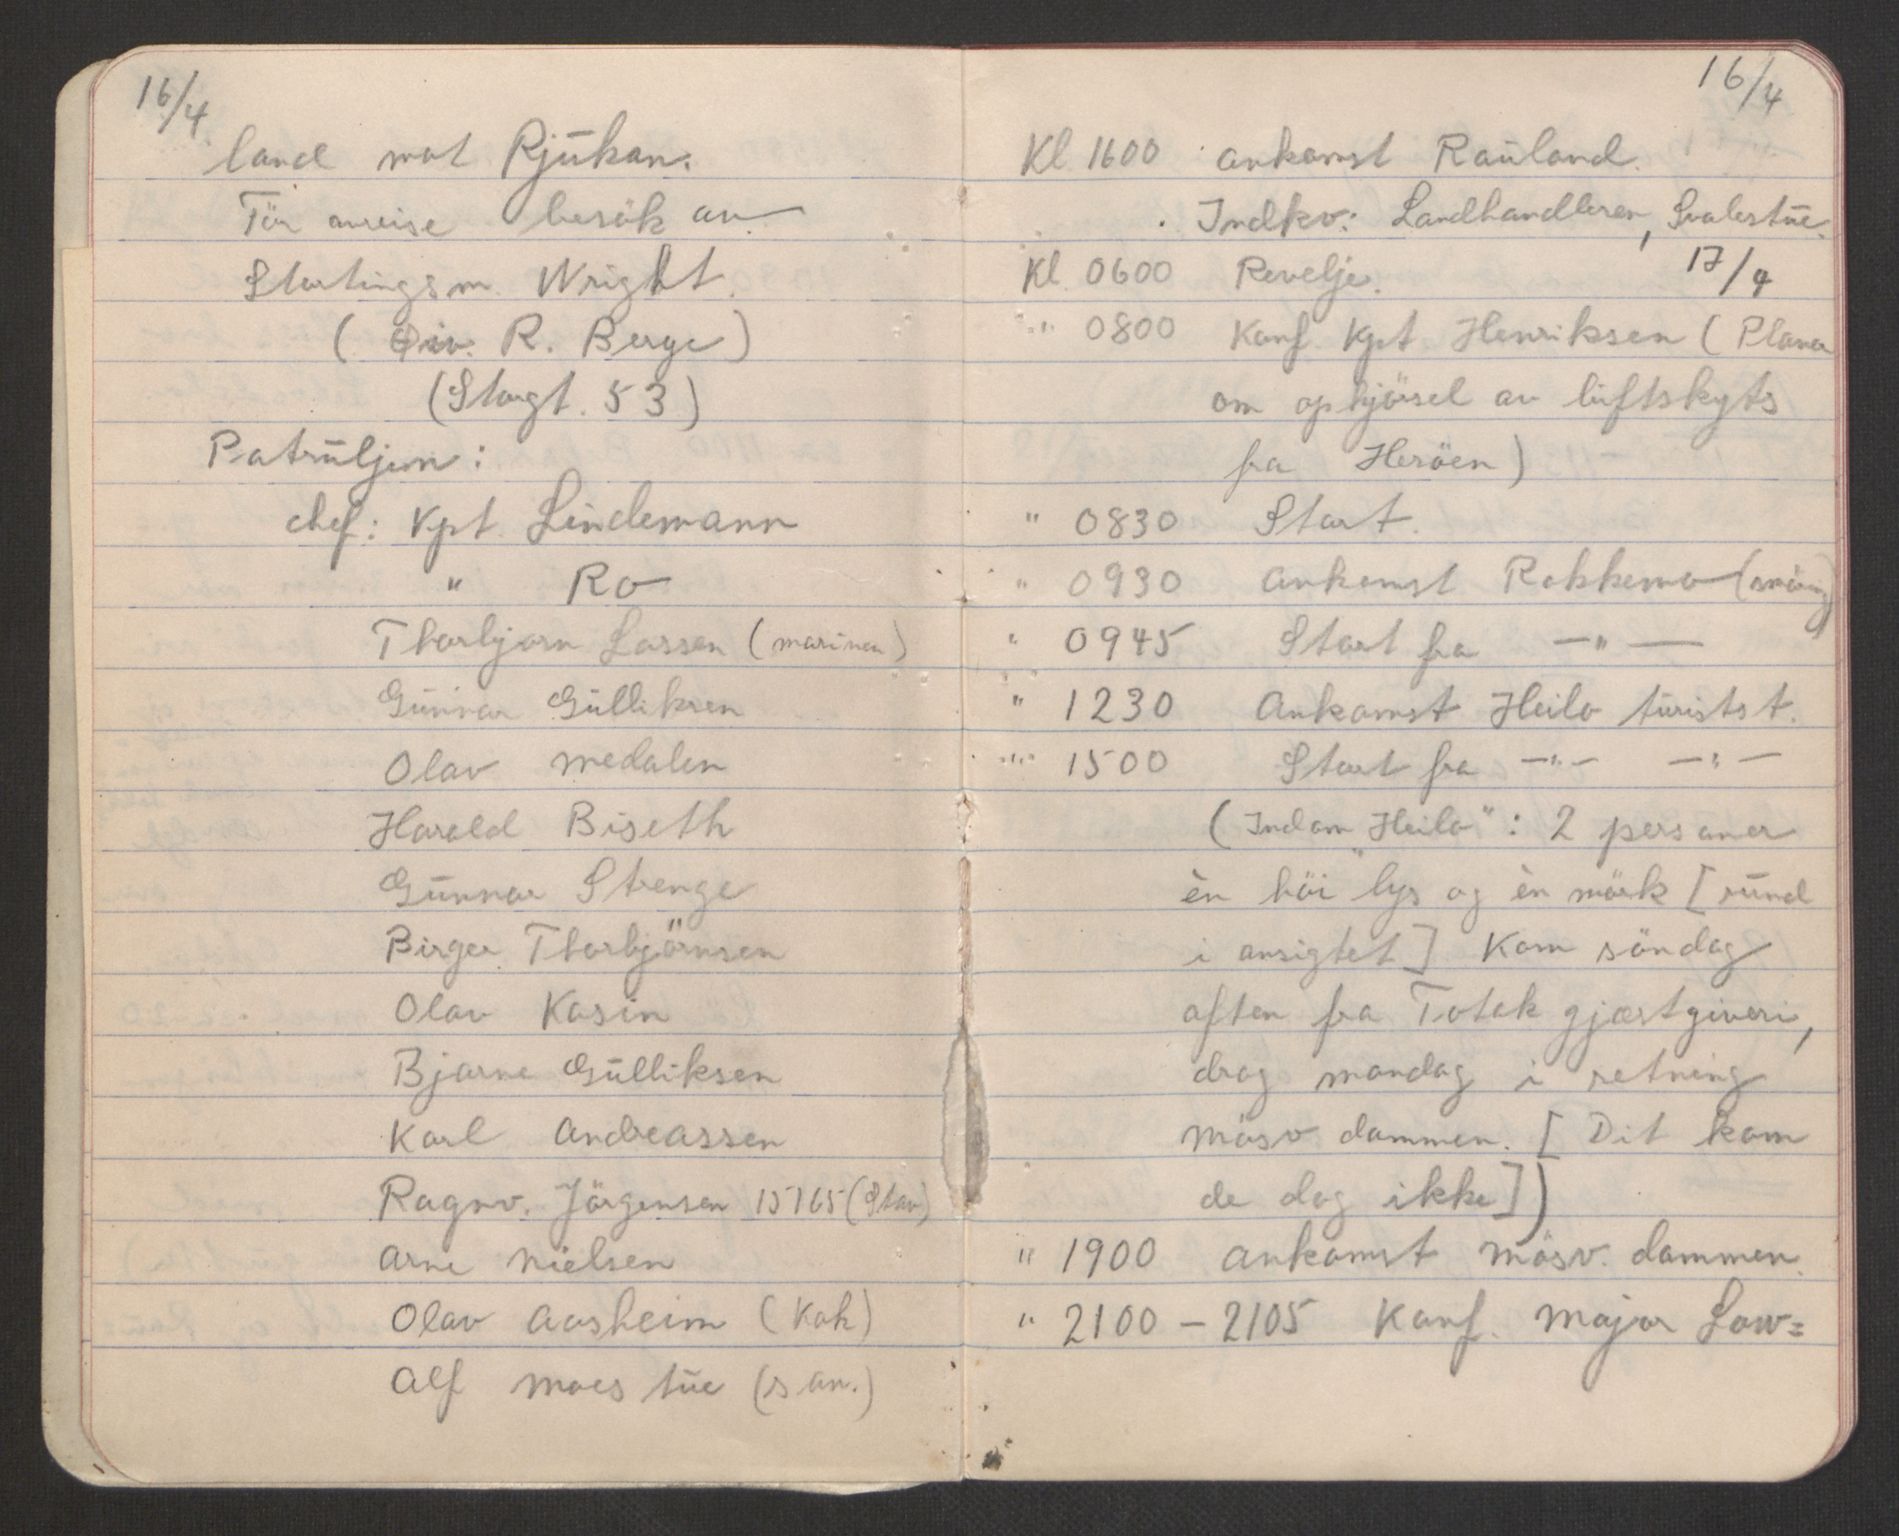 16/4
land mot Rjükan.
För avreise besök av
Stortingsm. Wright.
( Div. R. Berge )
(Storgt. 53)
Patrüljen:
chef: Kpt. Lindemann
" Ro
Thorbjorn Larsen (marinen)
Günnar Gülliksen
Olav Medalen
Harald Biseth
Günnar Strenge
Birger Thorbjörnsen
Olav Kasin
Bjarne Gülliksen
Karl Andreassen
Ragnv. Jörgensen 15765 (Stav)
Arne Nielsen
Olav Aasheim (Kok)
Alf Moestüe (san.)
16/4
Kl 1600 ankomst Raüland.
Indkv: Landhandleren, Svalestüe.
Kl. 0600 Revelje. 17/4
" 0800 Konf. Kpt Henriksen (Planer
om opkjörsel av lüftskyts
fra Heröen)
" 0830 Start.
" 0930 Ankomst Rokkemo
" 0945 Start fra —"—
" 1230 Ankomst Heilo türistst.
" 1500 Start fra —"— —"—
( Indom "Heilo": 2 personer
èn höi lys og èn mörk [ründ
i ansigtet] Kom söndag
aften fra Totak gjæstgiveri,
drog mandag i retning
Mösv. dammen. [ Dit kom
de dog ikke])
" 1900 ankomst Mösv. dammen.
" 2100 – 2105 Konf. Major Low=